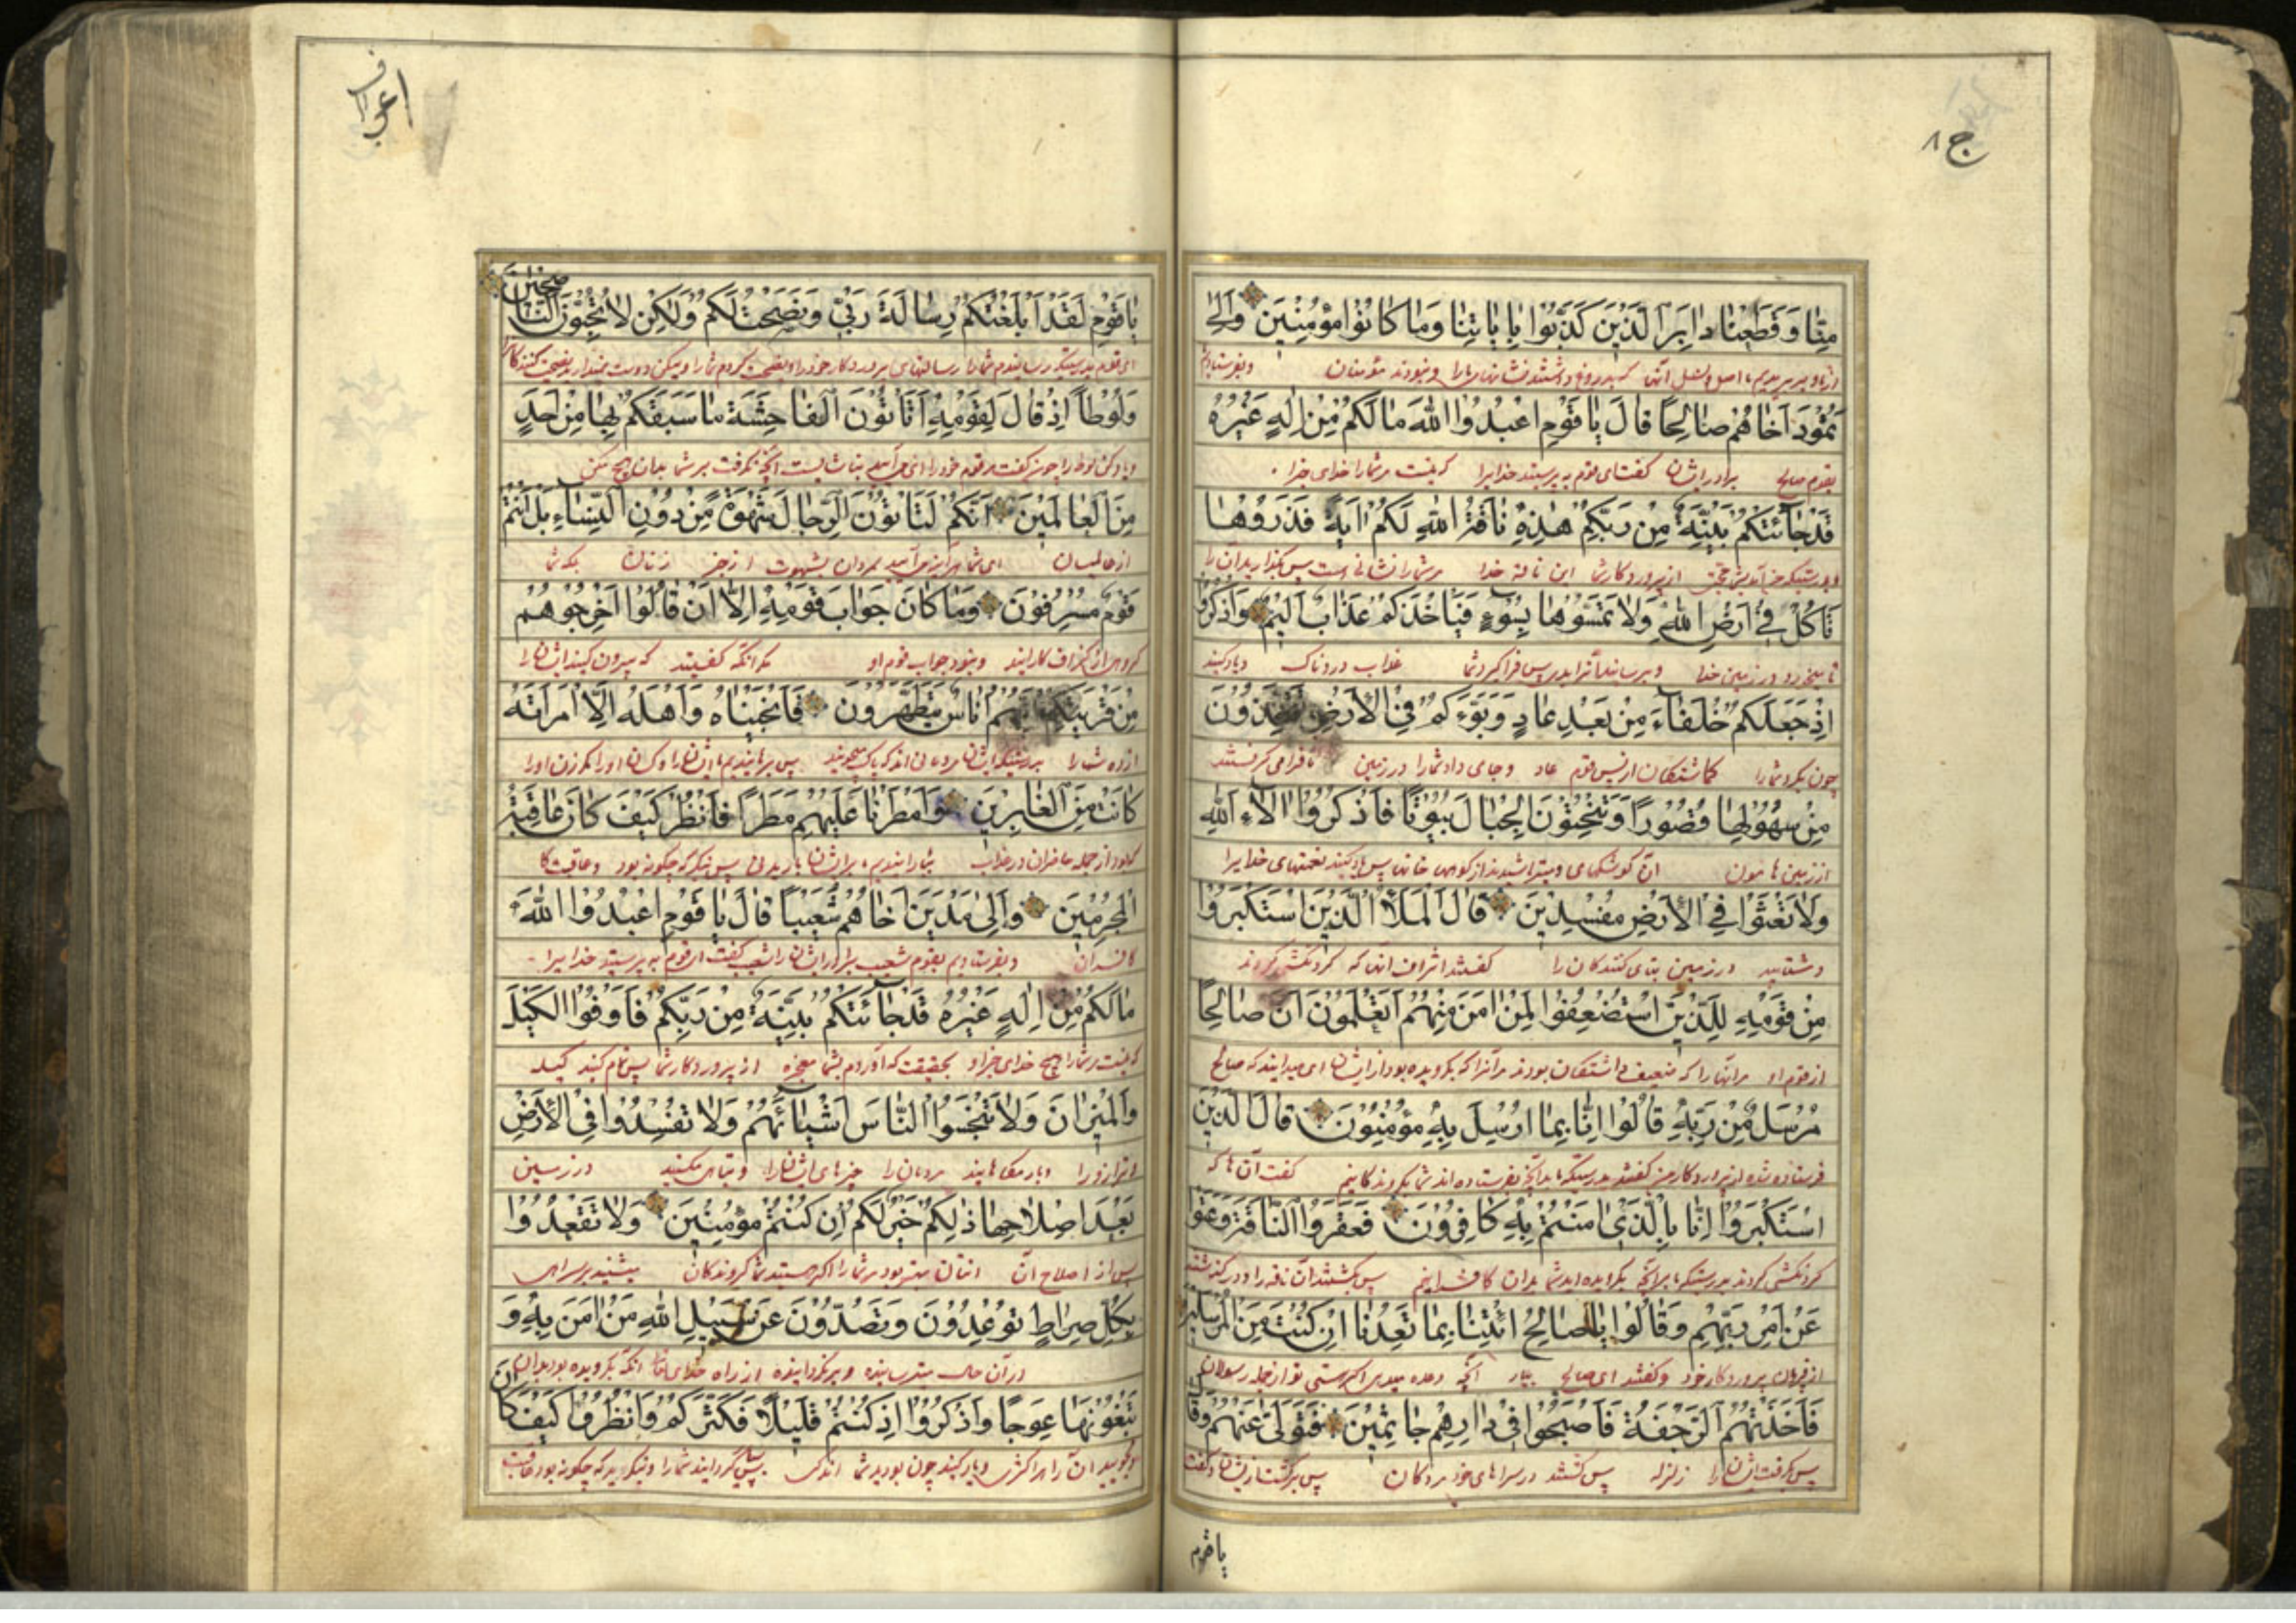 ج ٨
مِنَّا وَقَطَعْنَا دَابِرَ الَّذِينَ كَذَّبُوا بِاٰيَاتِنَا وَمَا كَانُوا مُؤْمِنِينَ وَاِلٰى
از ما و ببریدیم ما اصل و نسل آنها که بدروغ داشتند نشانهای ما را و نبودند مؤمنان و بفرستادیم
ثَمُودَ اَخَاهُمْ صَالِحًا قَالَ يَا قَوْمِ اعْبُدُوا اللّٰهَ مَا لَكُمْ مِنْ اِلٰهٍ غَيْرُهُ
بقوم صالح برادر ایشان گفت ای قوم به پرستید خدایرا که نیست مر شما را خدای جز او
قَدْ جَاءَتْكُمْ بَيِّنَةٌ مِنْ رَبِّكُمْ هٰذِهِ نَاقَةُ اللّٰهِ لَكُمْ اٰيَةً فَذَرُوهَا
از پروردگار شما این ناقه خدا مر شما را نشانی است پس بگذارید آن را
تَأْكُلْ فِي اَرْضِ اللّٰهِ وَلَا تَمَسُّوهَا بِسُوءٍ فَيَأْخُذَكُمْ عَذَابٌ اَلِيمٌ وَاذْكُرُوا
تا میخورد در زمین خدا و مرسانید آنرا بدی پس فرا گیرد شما عذاب دردناک و یاد کنید
اِذْ جَعَلَكُمْ خُلَفَاءَ مِنْ بَعْدِ عَادٍ وَبَوَّءَكُمْ فِي الْاَرْضِ تَتَّخِذُونَ
چون بکرد شما را از پس قوم عاد و جای داد شما را در زمین تا فرا می گرفتند
مِنْ سُهُولِهَا قُصُورًا وَتَنْحِتُونَ الْجِبَالَ بُيُوتًا فَاذْكُرُوا اٰلَاءَ اللّٰهِ
از زمین ها آن کوشکهای و میتراشیدند از کوهها خانها پس یاد کنید نعمتهای خدایرا
وَلَا تَعْثَوْا فِي الْاَرْضِ مُفْسِدِينَ قَالَ الْمَلَاُ الَّذِينَ اسْتَكْبَرُوا
در زمین کنندگان را گفتند اشراف آنها که گردنکشی کردند
مِنْ قَوْمِهِ لِلَّذِينَ اسْتُضْعِفُوا لِمَنْ اٰمَنَ مِنْهُمْ اَتَعْلَمُونَ اَنَّ صَالِحًا
از قوم او مر آنها را که ضعیف داشتگان بودند مر آنرا که بگرویده بود از ایشان ای میدانید که صالح
مُرْسَلٌ مِنْ رَبِّهِ قَالُوا اِنَّا بِمَا اُرْسِلَ بِهِ مُؤْمِنُونَ قَالَ الَّذِينَ
فرستاده شده از پروردگار گفتند بدرستیکه ما بدانچه بفرستاده اند گفت آن ها که
اسْتَكْبَرُوا اِنَّا بِالَّذِي اٰمَنْتُمْ بِهِ كَافِرُونَ فَعَقَرُوا النَّاقَةَ وَعَتَوْا
گردنکشی کردند بدرستیکه ما بدان کافرانیم پس بکشتند آن ناقه را و درگذشتند
عَنْ اَمْرِ رَبِّهِمْ وَقَالُوا يَا صَالِحُ ائْتِنَا بِمَا تَعِدُنَا اِنْ كُنْتَ مِنَ الْمُرْسَلِينَ
از فرمان پروردگار خود و گفتند ای صالح بیار آنچه وعده میدهی اگر هستی تو از جمله رسولان
فَاَخَذَتْهُمُ الرَّجْفَةُ فَاَصْبَحُوا فِي دَارِهِمْ جَاثِمِينَ فَتَوَلّٰى عَنْهُمْ وَقَالَ
پس بگرفت ایشان را زلزله پس گشتند در سراهای خود مردگان پس برگشت از ایشان و گفت
یا قوم
اعراف
يَا قَوْمِ لَقَدْ اَبْلَغْتُكُمْ رِسَالَةَ رَبِّي وَنَصَحْتُ لَكُمْ وَلٰكِنْ لَا تُحِبُّونَ النَّاصِحِينَ
ای قوم بدرستیکه رسانیدم شما را رسالتهای پروردگار خود را و نصیحت کردم شما را و لیکن دوست نمیدارید نصیحت کنندگان را
وَلُوطًا اِذْ قَالَ لِقَوْمِهِ اَتَأْتُونَ الْفَاحِشَةَ مَا سَبَقَكُمْ بِهَا مِنْ اَحَدٍ
و یاد کن لوط را چون گفت مر قوم خود را
مِنَ الْعَالَمِينَ اَئِنَّكُمْ لَتَأْتُونَ الرِّجَالَ شَهْوَةً مِنْ دُونِ النِّسَاءِ بَلْ اَنْتُمْ
از عالمیان مردان بشهوت از جز زنان بلکه شما
قَوْمٌ مُسْرِفُونَ وَمَا كَانَ جَوَابَ قَوْمِهِ اِلَّا اَنْ قَالُوا اَخْرِجُوهُمْ
گروهی از گزاف کارانید و نبود جواب قوم او مگر آنکه گفتند که بیرون کنید ایشان را
مِنْ قَرْيَتِكُمْ اِنَّهُمْ اُنَاسٌ يَتَطَهَّرُونَ فَاَنْجَيْنَاهُ وَاَهْلَهُ اِلَّا امْرَاَتَهُ
از ده شما را بدرستیکه ایشان مردمانی اند که پاک میجویند پس برهانیدیم ما ایشان را و کسان او را مگر زن او را
كَانَتْ مِنَ الْغَابِرِينَ وَاَمْطَرْنَا عَلَيْهِمْ مَطَرًا فَانْظُرْ كَيْفَ كَانَ عَاقِبَةُ
که بود از جمله بر ایشان بارانیدنی پس بنگر که چگونه بود عاقبت
الْمُجْرِمِينَ وَاِلٰى مَدْيَنَ اَخَاهُمْ شُعَيْبًا قَالَ يَا قَوْمِ اعْبُدُوا اللّٰهَ
کافران و بفرستادیم بقوم شعیب برادر ایشان را شعیب گفت ای قوم به پرستید خدایرا
مَا لَكُمْ مِنْ اِلٰهٍ غَيْرُهُ قَدْ جَاءَتْكُمْ بَيِّنَةٌ مِنْ رَبِّكُمْ فَاَوْفُوا الْكَيْلَ
که نیست مر شما را هیچ خدای جز او بحقیقت که آوردم بشما معجزه از پروردگار شما پس تمام کنید کیله
وَالْمِيزَانَ وَلَا تَبْخَسُوا النَّاسَ اَشْيَاءَهُمْ وَلَا تُفْسِدُوا فِي الْاَرْضِ
و ترازو را مردمان را چیزهای ایشان را و تباهی مکنید در زمین
بَعْدَ اِصْلَاحِهَا ذٰلِكُمْ خَيْرٌ لَكُمْ اِنْ كُنْتُمْ مُؤْمِنِينَ وَلَا تَقْعُدُوا
پس از اصلاح آن بهتر بود مر شما را اگر هستید شما گروندگان
بِكُلِّ صِرَاطٍ تُوعِدُونَ وَتَصُدُّونَ عَنْ سَبِيلِ اللّٰهِ مَنْ اٰمَنَ بِهِ وَ
در آن حال از راه خدای آنکه بگرویده بود بدان
تَبْغُونَهَا عِوَجًا وَاذْكُرُوا اِذْ كُنْتُمْ قَلِيلًا فَكَثَّرَكُمْ وَانْظُرُوا كَيْفَ كَانَ
و یاد کنید چون بودید شما اندکی پس بسیار گردانید شما را و بنگرید که چگونه بود عاقبت